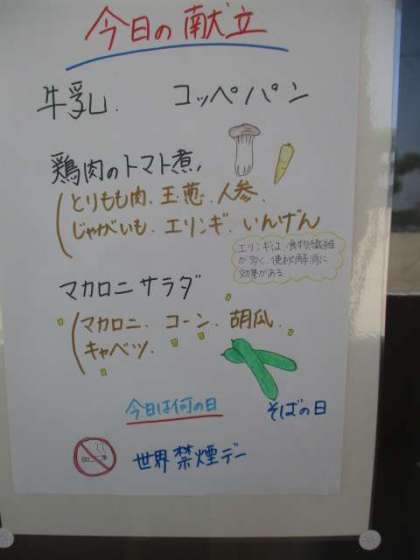 今日の献立
牛乳. コッペパン
鶏肉のトマト煮,
とりもも肉.玉葱.人参.
じゃがいも.エリンギ.いんげん
エリンギは、食物繊維
が多く、便秘解消に
効果がある
マカロニサラダ
マカロニ.コーン.胡瓜.
キャベツ.
今日は何の日
そばの日
世界禁煙デー